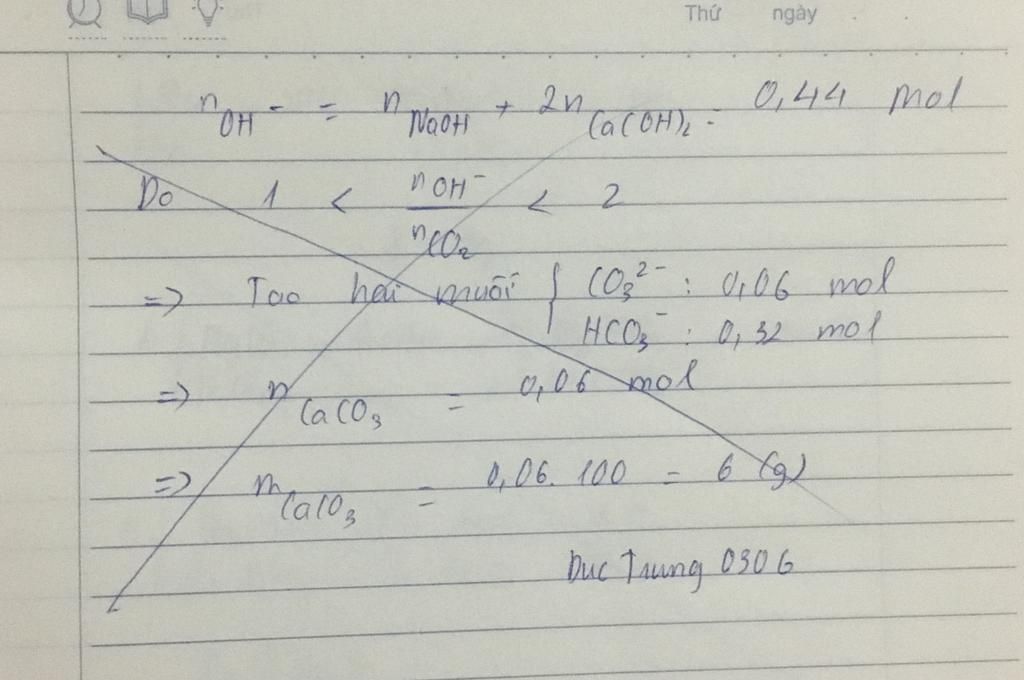 Thứ ngày
n OH⁻ = n NaOH + 2n Ca(OH)₂ = 0,44 mol
Do 1 < n OH⁻ / n CO₂ < 2
=> Tạo hai muối { CO₃²⁻ : 0,06 mol
HCO₃⁻ : 0,32 mol
=> n CaCO₃ = 0,06 mol
=> m CaCO₃ = 0,06. 100 = 6 (g)
Duc Trung 0306